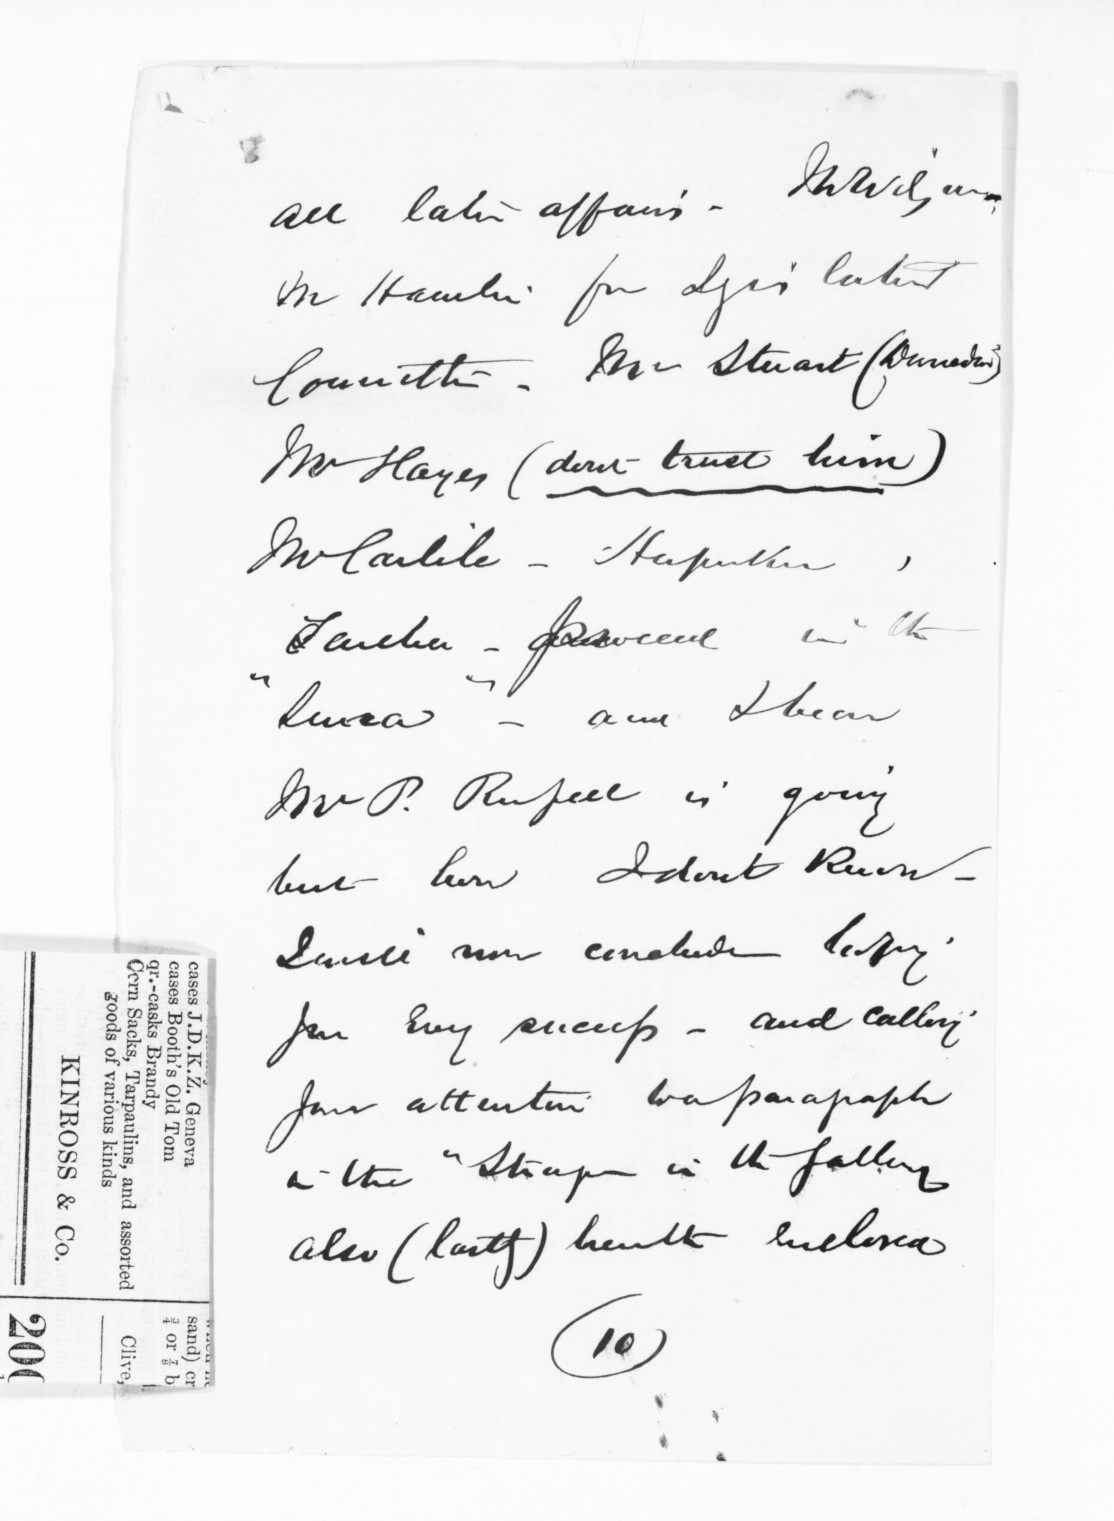 all later affairs - Mr Wilson,
Mr Hamlin for Legislative
Committee - Mr Stuart (Dunedin)
Mr Hayes (dont trust him)
Mr Carlile - Hapuku,
Tareha - proceed in the
"Luna" - and I hear
Mr P. Russell is going
but how I dont know -
I will now conclude hoping
for every success - and calling
your attention to a paragraph
in the "Stranger in the Gallery
also (lastly) herewith enclosed
(10)
cases J.D.K.Z. Geneva
cases Booth's Old Tom
qr.-casks Brandy
Corn Sacks, Tarpaulins, and assorted
goods of various kinds
KINROSS & Co.
sand) or
¾ or ⅞ b
Clive,
200